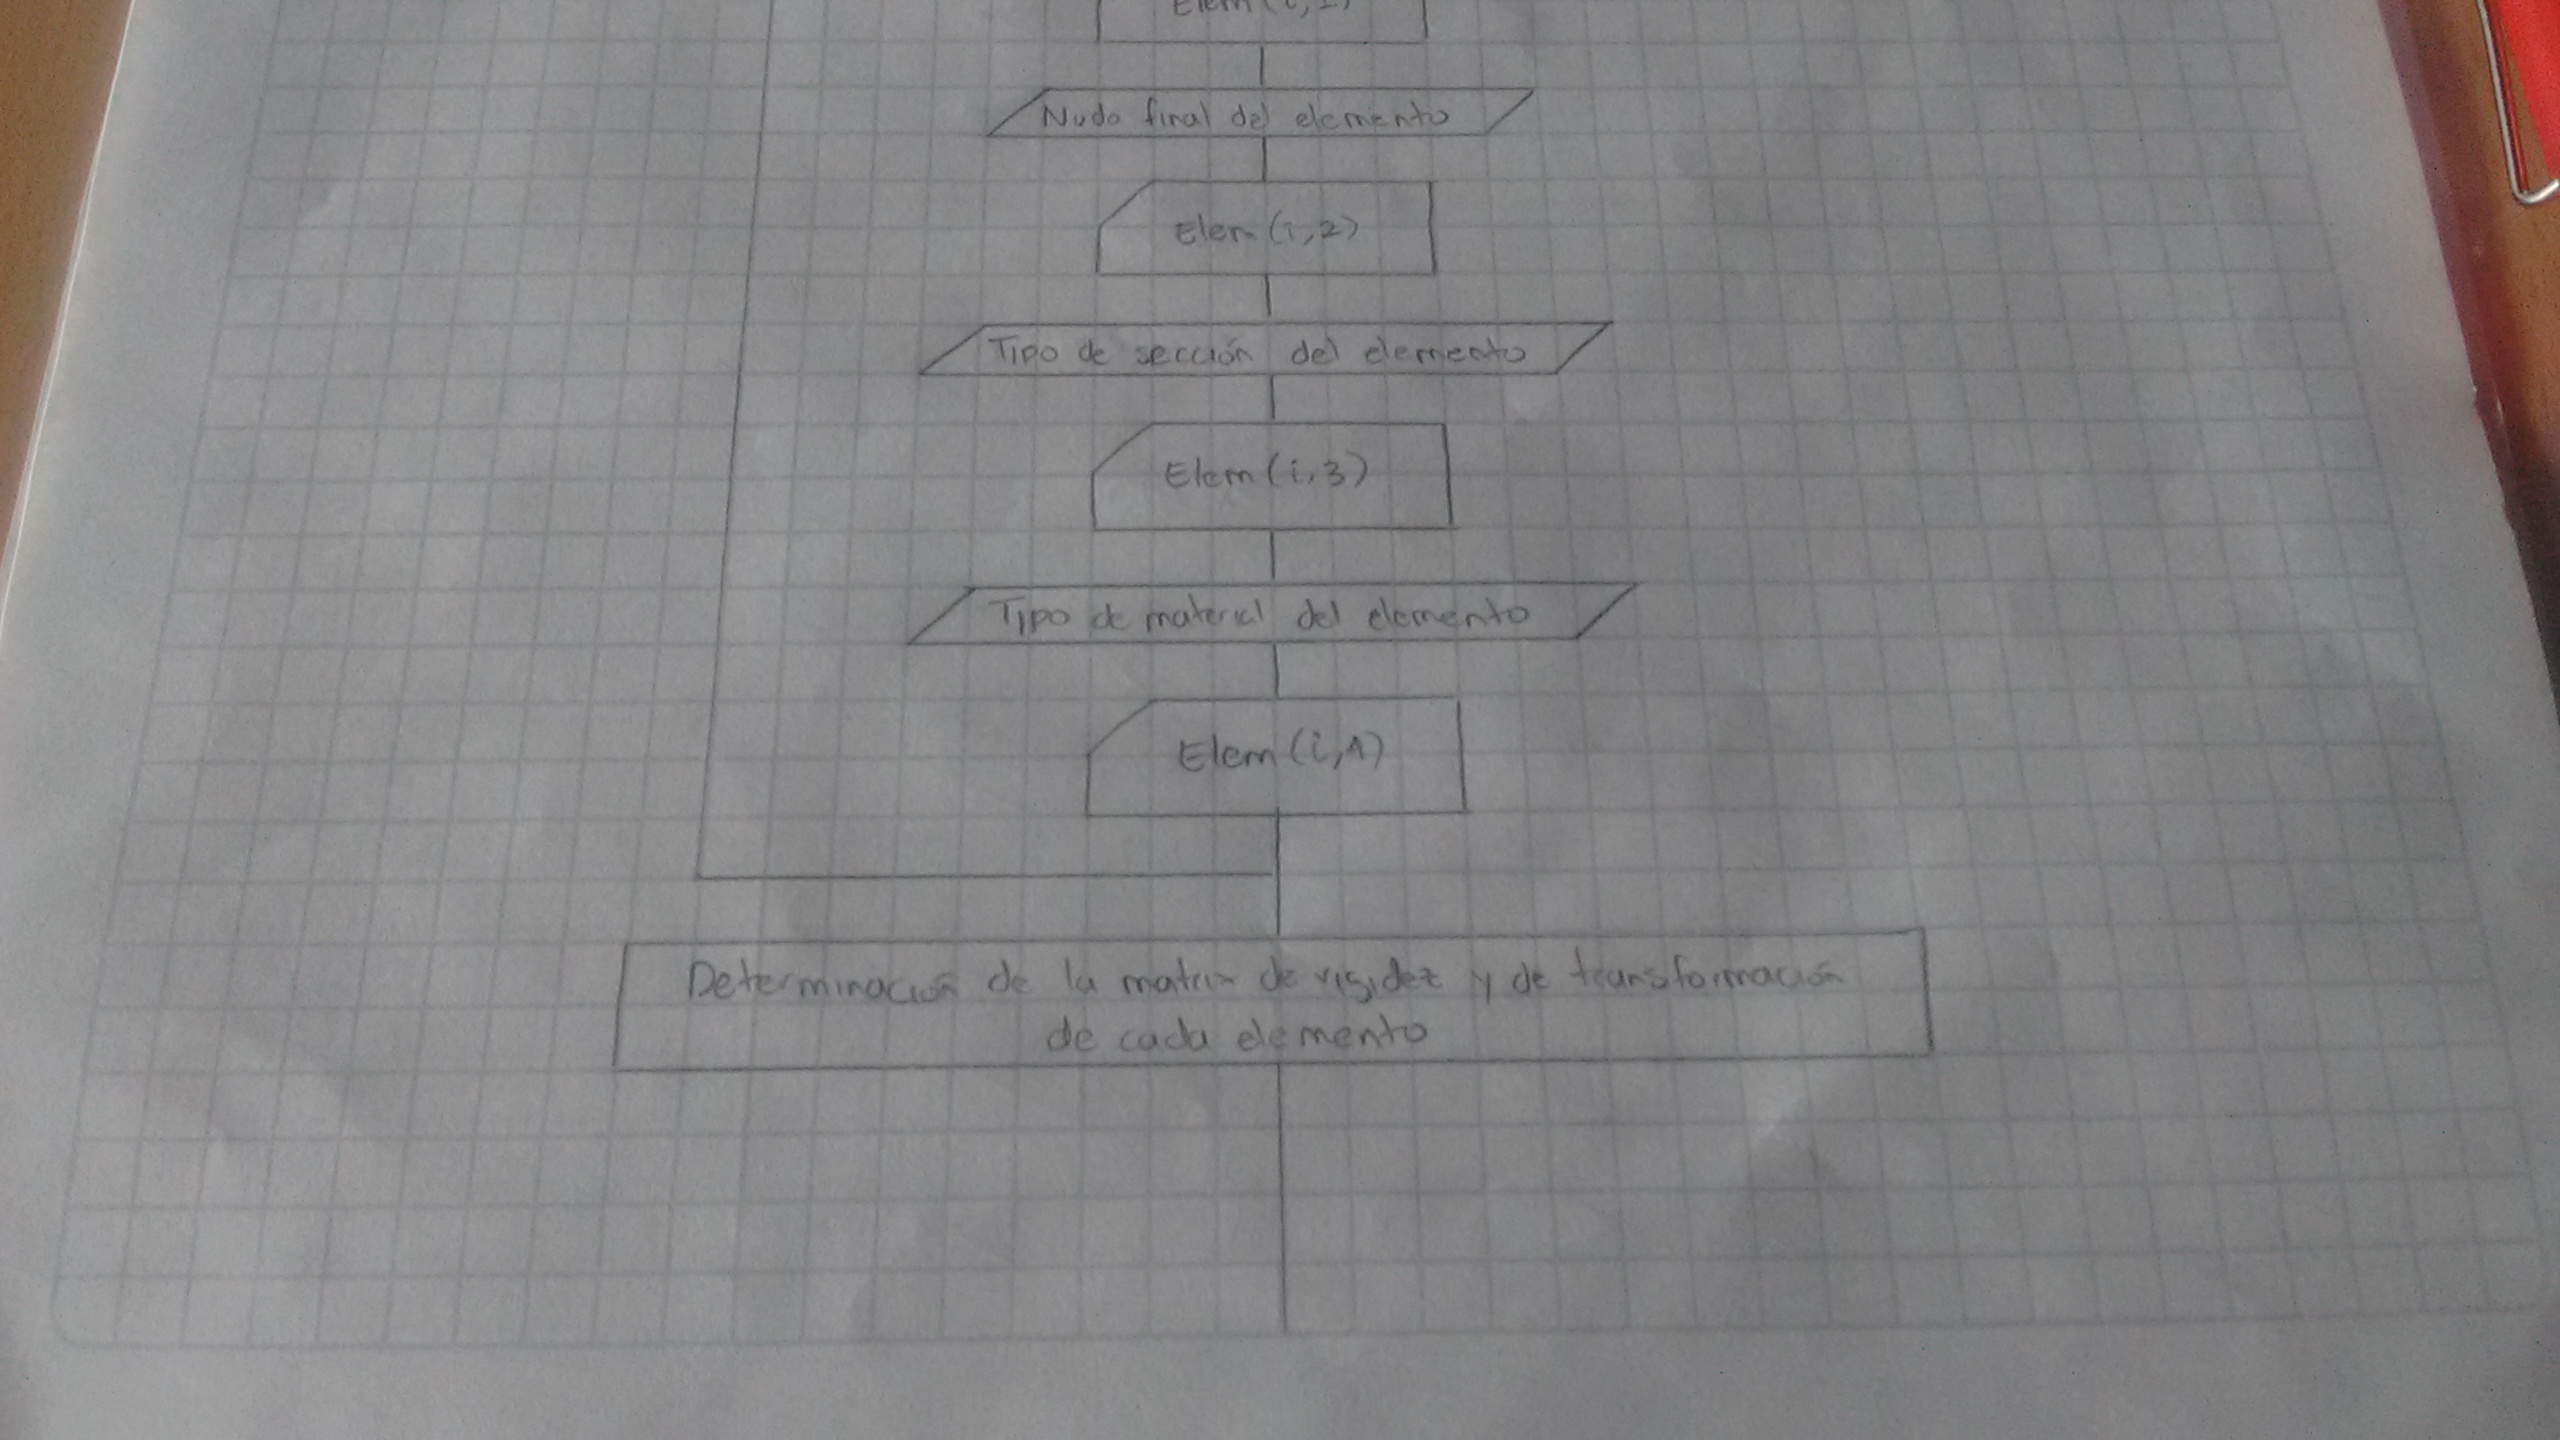 Elem(i,1)
Nudo final del elemento
Elem(i,2)
Tipo de sección del elemento
Elem(i,3)
Tipo de material del elemento
Elem(i,1)
Determinación de la matriz de rigidez y de transformación
de cada elemento